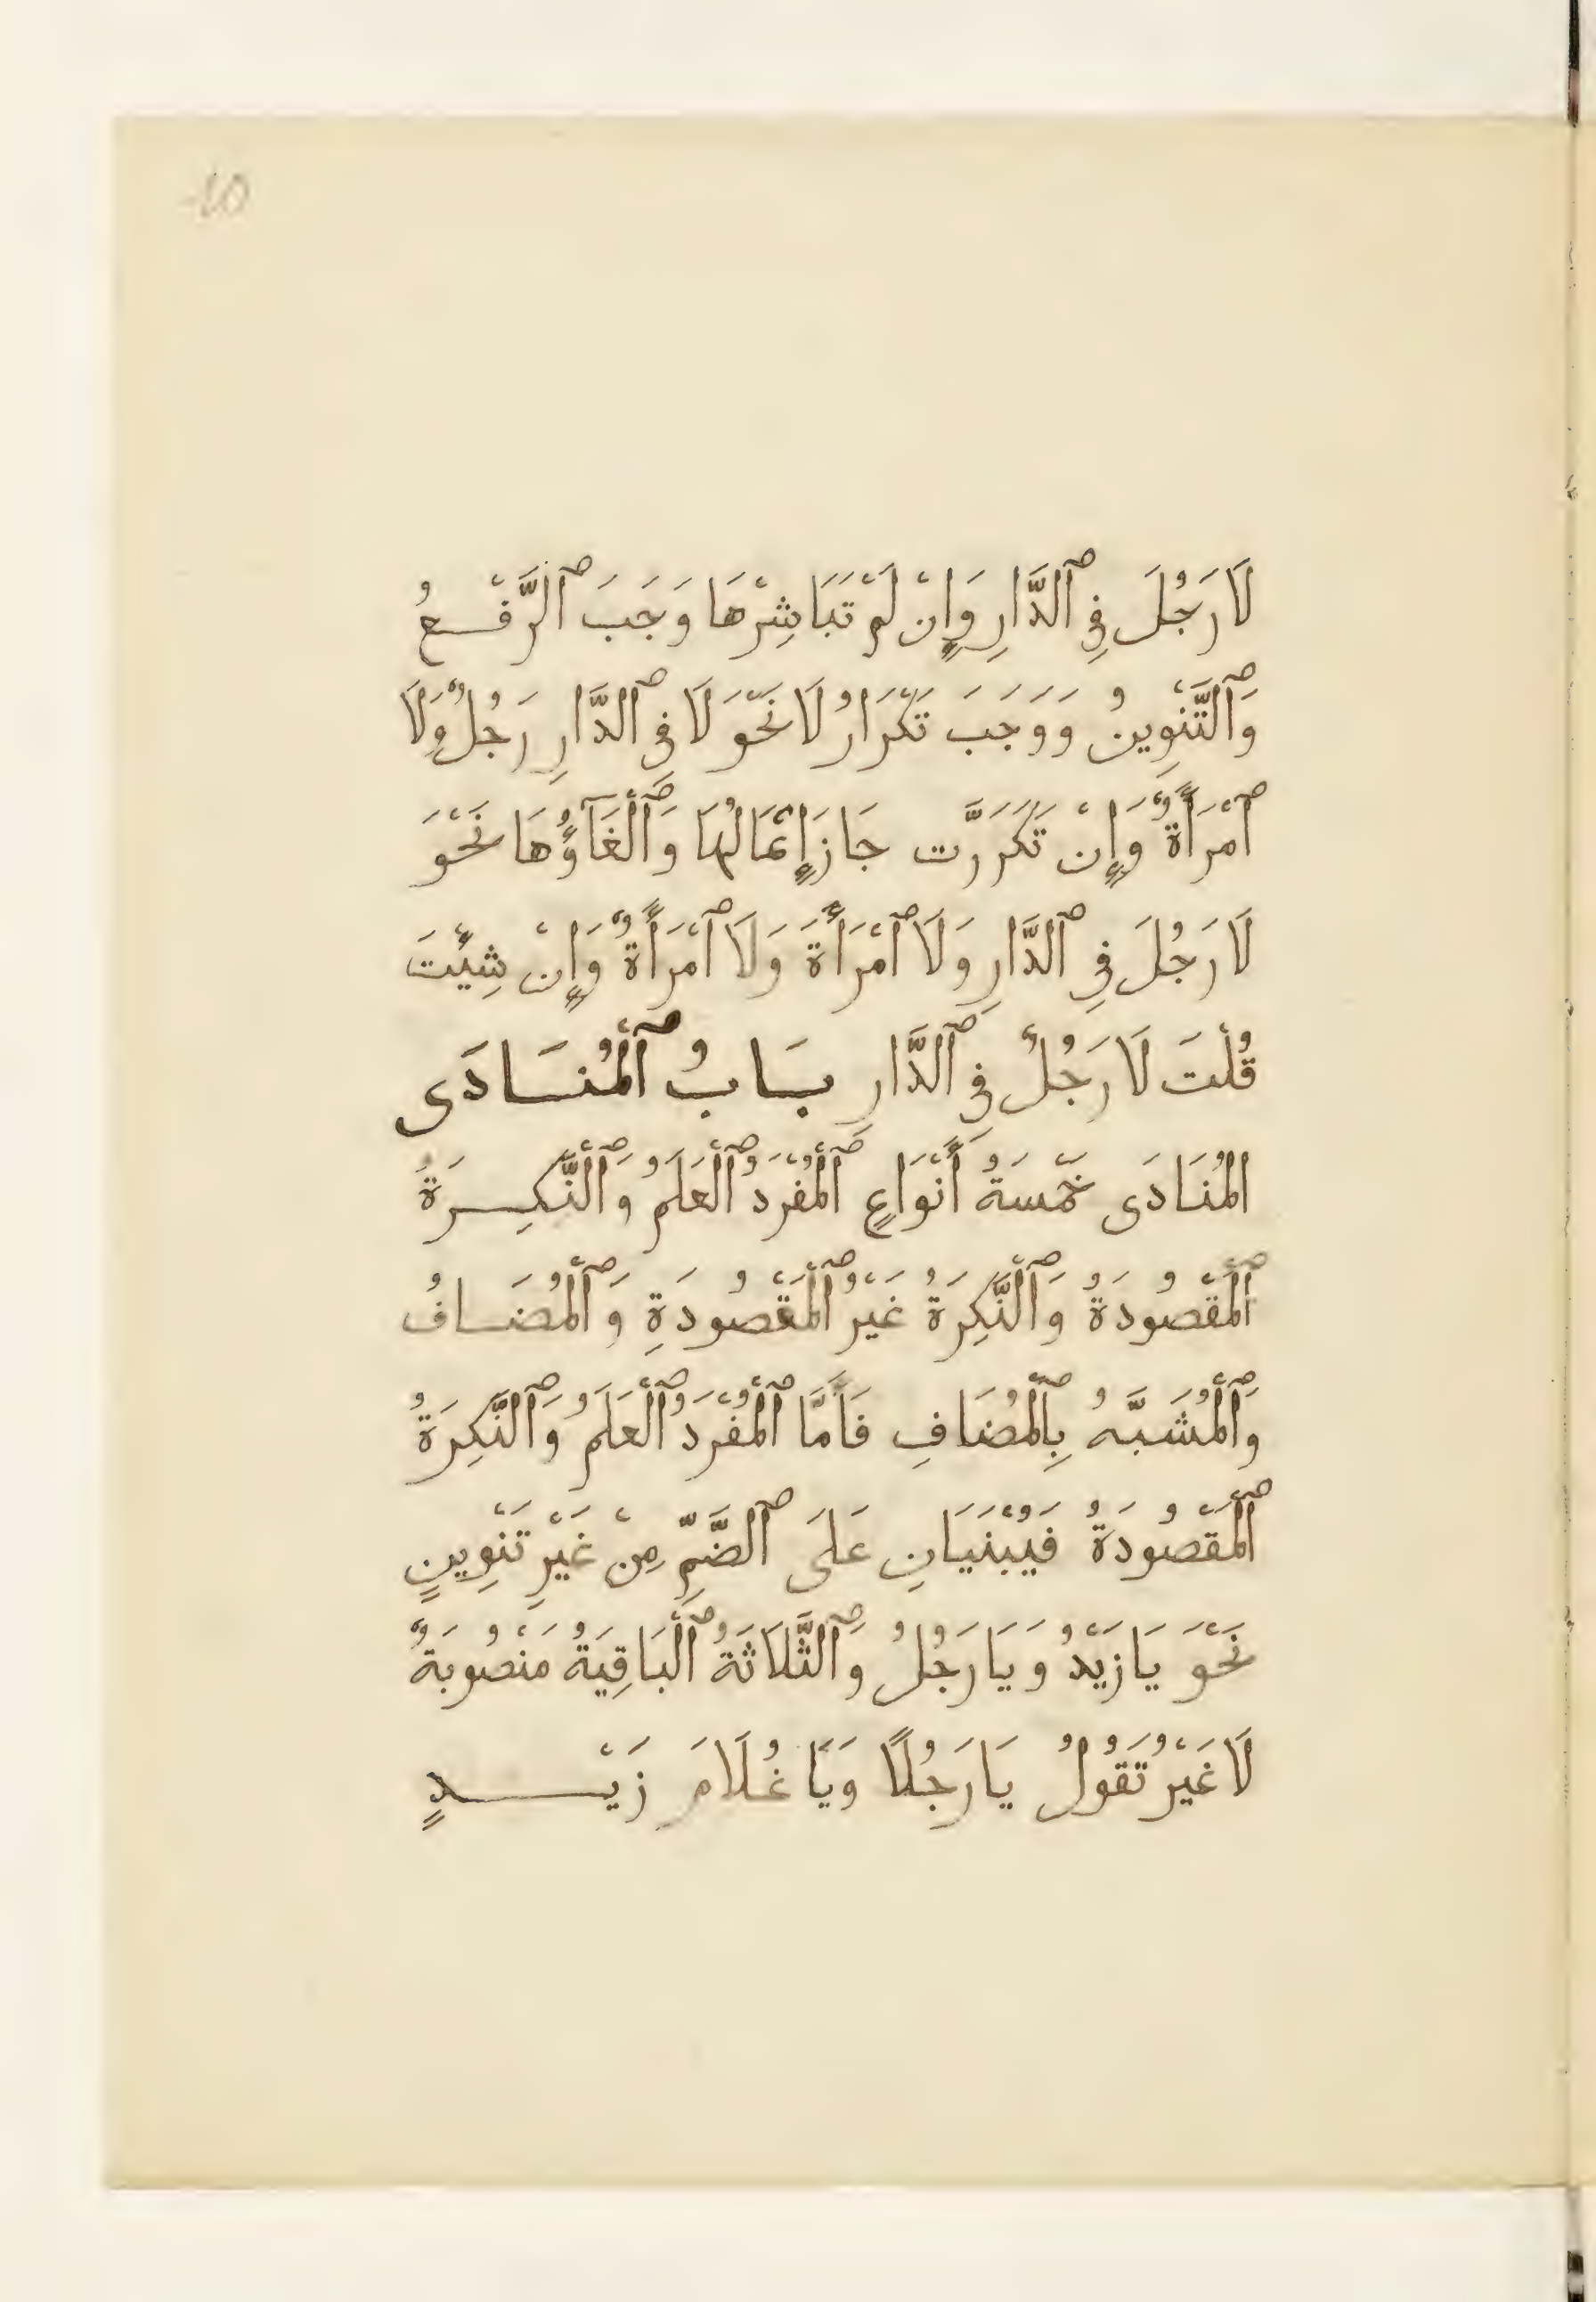 10
لَا رَجُلَ فِي ٱلدَّارِ وَإِنْ لَمْ تَبَاشِرْهَا وَجَبَ ٱلرَّفْعُ
وَٱلتَّنْوِينُ وَوَجَبَ تَكْرَارُ لَا نَحْوَ لَا فِى ٱلدَّارِ رَجُلٌ وَلَا
ٱمْرَأَةٌ وَإِنْ تَكَرَرَّت جَازَ إِعْمَالُهَا وَٱلْغَآؤُهَا نَحْوَ
لَا رَجُلَ فِي ٱلدَّارِ وَلَا ٱمْرَأَةَ وَلَا ٱمْرَأَةٌ وَإِنْ شِئْتَ
قُلْتَ لَا رَجُلٌ فِي ٱلدَّارِ بَابُ ٱلْمُنَادَى
المُنَادَى خَمْسَةُ أَنْوَاعٍ ٱلْمُفْرَدُ ٱلْعَلَمُ وَٱلْنَّكِرَةُ
ٱلْمَقْصُودَةُ وَٱلْنَّكِرَةُ غَيْرُ ٱلْمَقْصُودَةِ وَٱلْمُضَافُ
وَٱلْمُشَبَّهُ بِٱلْمُضَافِ فَاَمَّا ٱلْمُفْرَدُ ٱلْعَلَمُ وَٱلنَّكِرَةُ
ٱلْمَقْصُودَةُ فَيُبْنَيَانِ عَلَى ٱلضَّمِّ مِنْ غَيْرِ تَنْوِينٍ
نَحْوَ يَا زَيْدُ وَيَا رَجُلُ وَٱلثَّلَاثَةُ ٱلْبَاقِيَةُ مَنْصُوبَةٌ
لَا غَيْرُ تَقُولُ يَا رَجُلًا وَيَا غُلَامَ زَيْدٍ